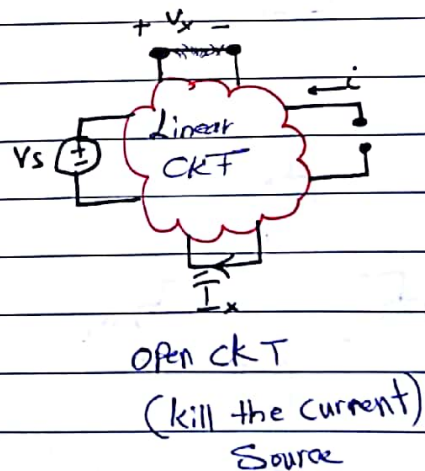 + Vx -
i
Linear
CKT
Vs
+
-
Ix
open CKT
(kill the current)
Source